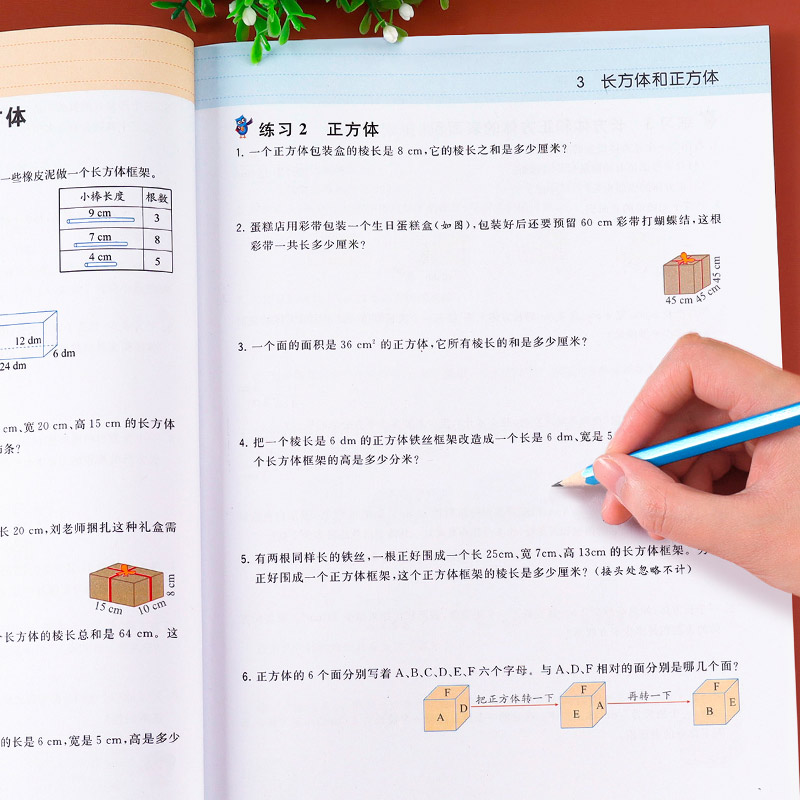 方体
一些橡皮泥做一个长方体框架。
小棒长度 根数
9 cm 3
7 cm 8
4 cm 5
12 dm
6 dm
24 dm
cm、宽20 cm、高15 cm的长方体
布条?
长20 cm,刘老师捆扎这种礼盒需
15 cm 10 cm 8 cm
个长方体的棱长总和是64 cm。这
的长是6 cm,宽是5 cm,高是多少
3 长方体和正方体
练习2 正方体
1. 一个正方体包装盒的棱长是8 cm,它的棱长之和是多少厘米?
2. 蛋糕店用彩带包装一个生日蛋糕盒(如图),包装好后还要预留60 cm彩带打蝴蝶结,这根
彩带一共长多少厘米?
45 cm 45 cm 45 cm
3. 一个面的面积是36 cm²的正方体,它所有棱长的和是多少厘米?
4. 把一个棱长是6 dm的正方体铁丝框架改造成一个长是6 dm、宽是5
个长方体框架的高是多少分米?
5. 有两根同样长的铁丝,一根正好围成一个长25cm、宽7cm、高13cm的长方体框架。
正好围成一个正方体框架,这个正方体框架的棱长是多少厘米?(接头处忽略不计)
6. 正方体的6个面分别写着A、B、C、D、E、F六个字母。与A、D、F相对的面分别是哪几个面?
F A D 把正方体转一下 F E A 再转一下 F B E